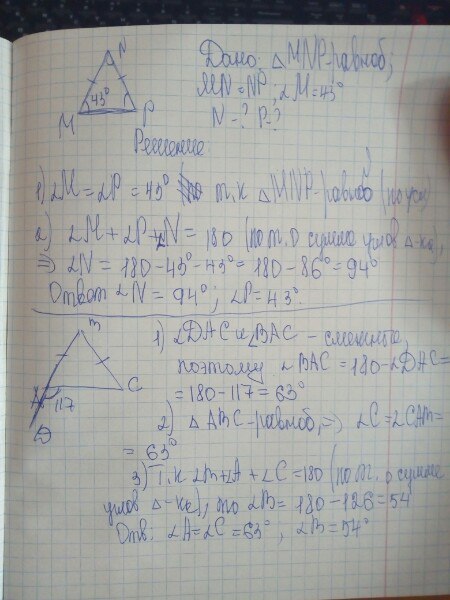 N
43°
M P
Дано: △MNP-равноб;
MN=NP; ∠M=43°
N-? P-?
Решение:
1) ∠M=∠P=43° т.к △MNP-равноб (по усл)
2) ∠M+∠P+∠N=180 (по т. о сумме углов △-ка),
⇒ ∠N=180-43-43=180-86°=94°
Ответ ∠N=94°; ∠P=43°.
B
A C
117
D
1) ∠DAC и ∠BAC - смежные,
поэтому ∠BAC=180-∠DAC=
=180-117=63°
2) △ABC-равноб, ⇒ ∠C=∠CAB=
=63°
3) Т.к ∠B+∠A+∠C=180 (по т. о сумме
углов △-ка), то ∠B=180-126=54
Отв: ∠A=∠C=63°, ∠B=54°